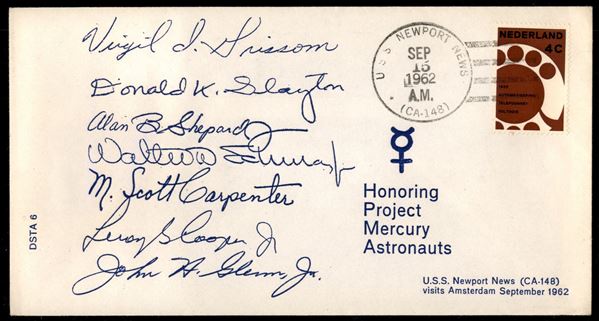 Virgil I. Grissom
Donald K. Slayton
Alan B. Shepard, Jr
Walter M Schirra, Jr
M. Scott Carpenter
Leroy G. Cooper Jr
John H. Glenn, Jr.
U.S.S. NEWPORT NEWS
SEP
15
1962
A.M.
(CA-148)
NEDERLAND
4C
1962
TELEFOONNET
VOLTOOID
Honoring
Project
Mercury
Astronauts
DSTA 6
U.S.S. Newport News (CA-148)
visits Amsterdam September 1962